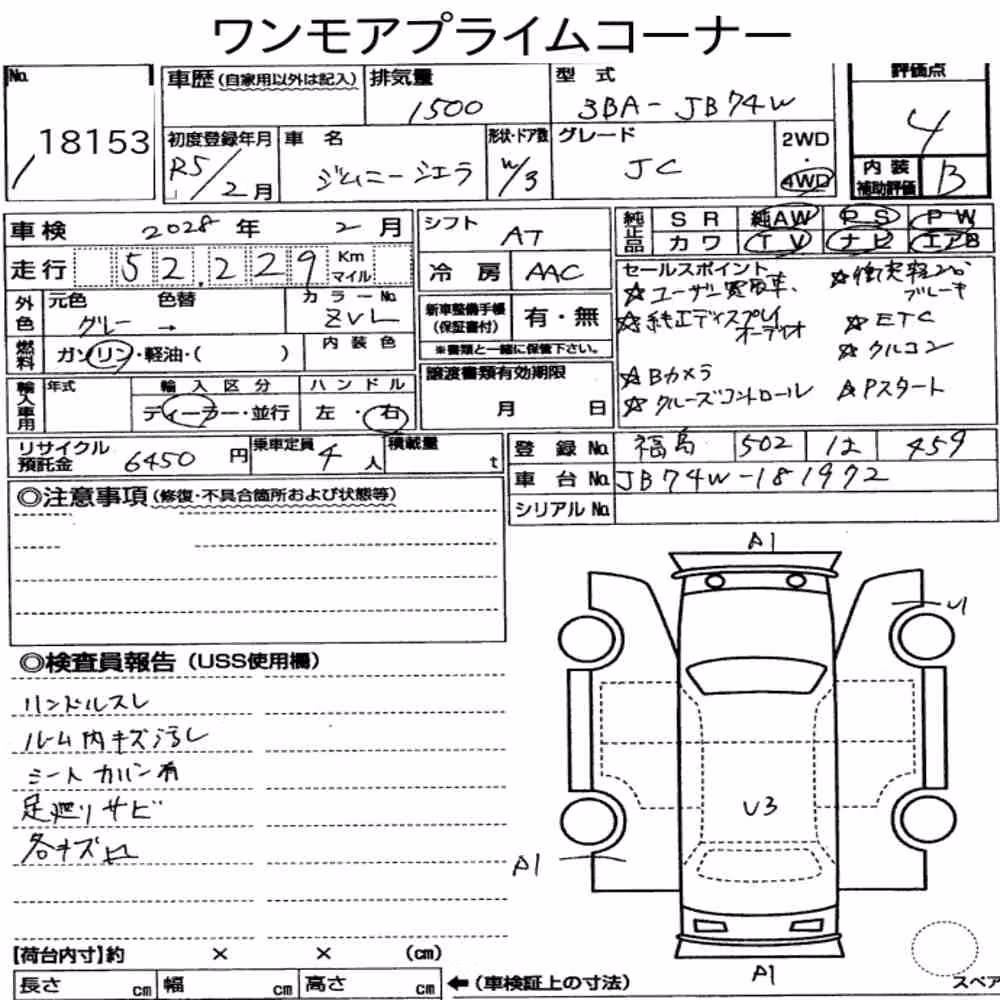 ワンモアプライムコーナー
No. 18153
車歴 (自家用以外は記入)
排気量 1500
型式 3BA-JB74W
評価点 4
初度登録年月 R5/2月
車名 ジムニーシエラ
形状・ドア数 W/3
グレード JC
2WD・4WD
内装補助評価 B
車検 2028年 2月
走行 52,229 Km マイル
シフト AT
冷房 AAC
純正品 SR 純AW PS PW
カワ TV ナビ エアB
外色 元色 グレー → 色替
カラーNo. ZVL
燃料 ガソリン・軽油・( )
内装色
新車整備手帳(保証書付) 有・無
※書類と一緒に保管下さい。
セールスポイント
☆ユーザー買取車、
☆純正ディスプレイオーディオ
☆Bカメラ
☆クルーズコントロール
ブレーキ
☆ETC
☆クルコン
☆Pスタート
輸入車用 年式
輸入区分 ディーラー・並行
ハンドル 左・右
譲渡書類有効期限 月 日
リサイクル預託金 6450円
乗車定員 4人
積載量 t
登録No. 福島 502 は 459
車台No. JB74W-181972
シリアルNo.
◎注意事項(修復・不具合箇所および状態等)
◎検査員報告(USS使用欄)
ハンドルスレ
ルーム内キズ汚レ
シートカバー有
足廻りサビ
各キズ凹
A1
U1
U3
A1
A1
スペア
【荷台内寸】約 × × (cm)
長さ cm 幅 cm 高さ cm
←(車検証上の寸法)